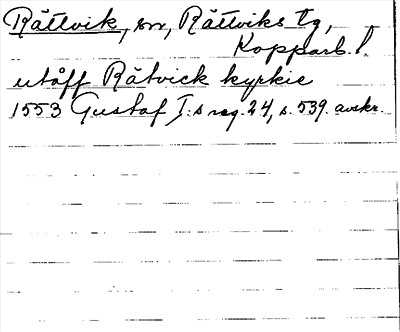 Rättvik, sn, Rättviks tg,
Kopparb. l.
utåff Rätvick kyrkie
1553 Gustaf I:s reg. 24, s. 539. avskr.